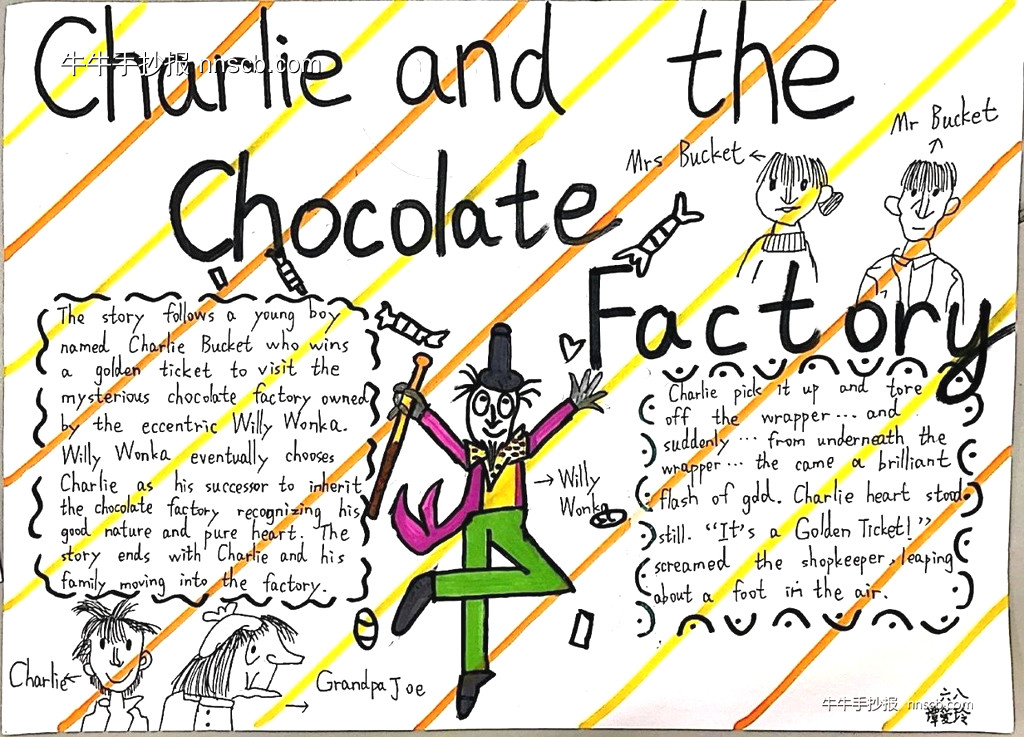 Charlie and the
牛牛手抄报 nnscb.com
Chocolate
Factory
Mrs Bucket
Mr Bucket
The story follows a young boy
named Charlie Bucket who wins
a golden ticket to visit the
mysterious chocolate factory owned
by the eccentric Willy Wonka.
Willy Wonka eventually chooses
Charlie as his successor to inherit
the chocolate factory recognizing his
good nature and pure heart. The
story ends with Charlie and his
family moving into the factory.
Willy
Wonka
Charlie pick it up and tore
off the wrapper... and
suddenly... from underneath the
wrapper... the came a brilliant
flash of gold. Charlie heart stood
still. “It's a Golden Ticket!”
screamed the shopkeeper, leaping
about a foot in the air.
Charlie
Grandpa Joe
牛牛手抄报 nnscb.com
六八